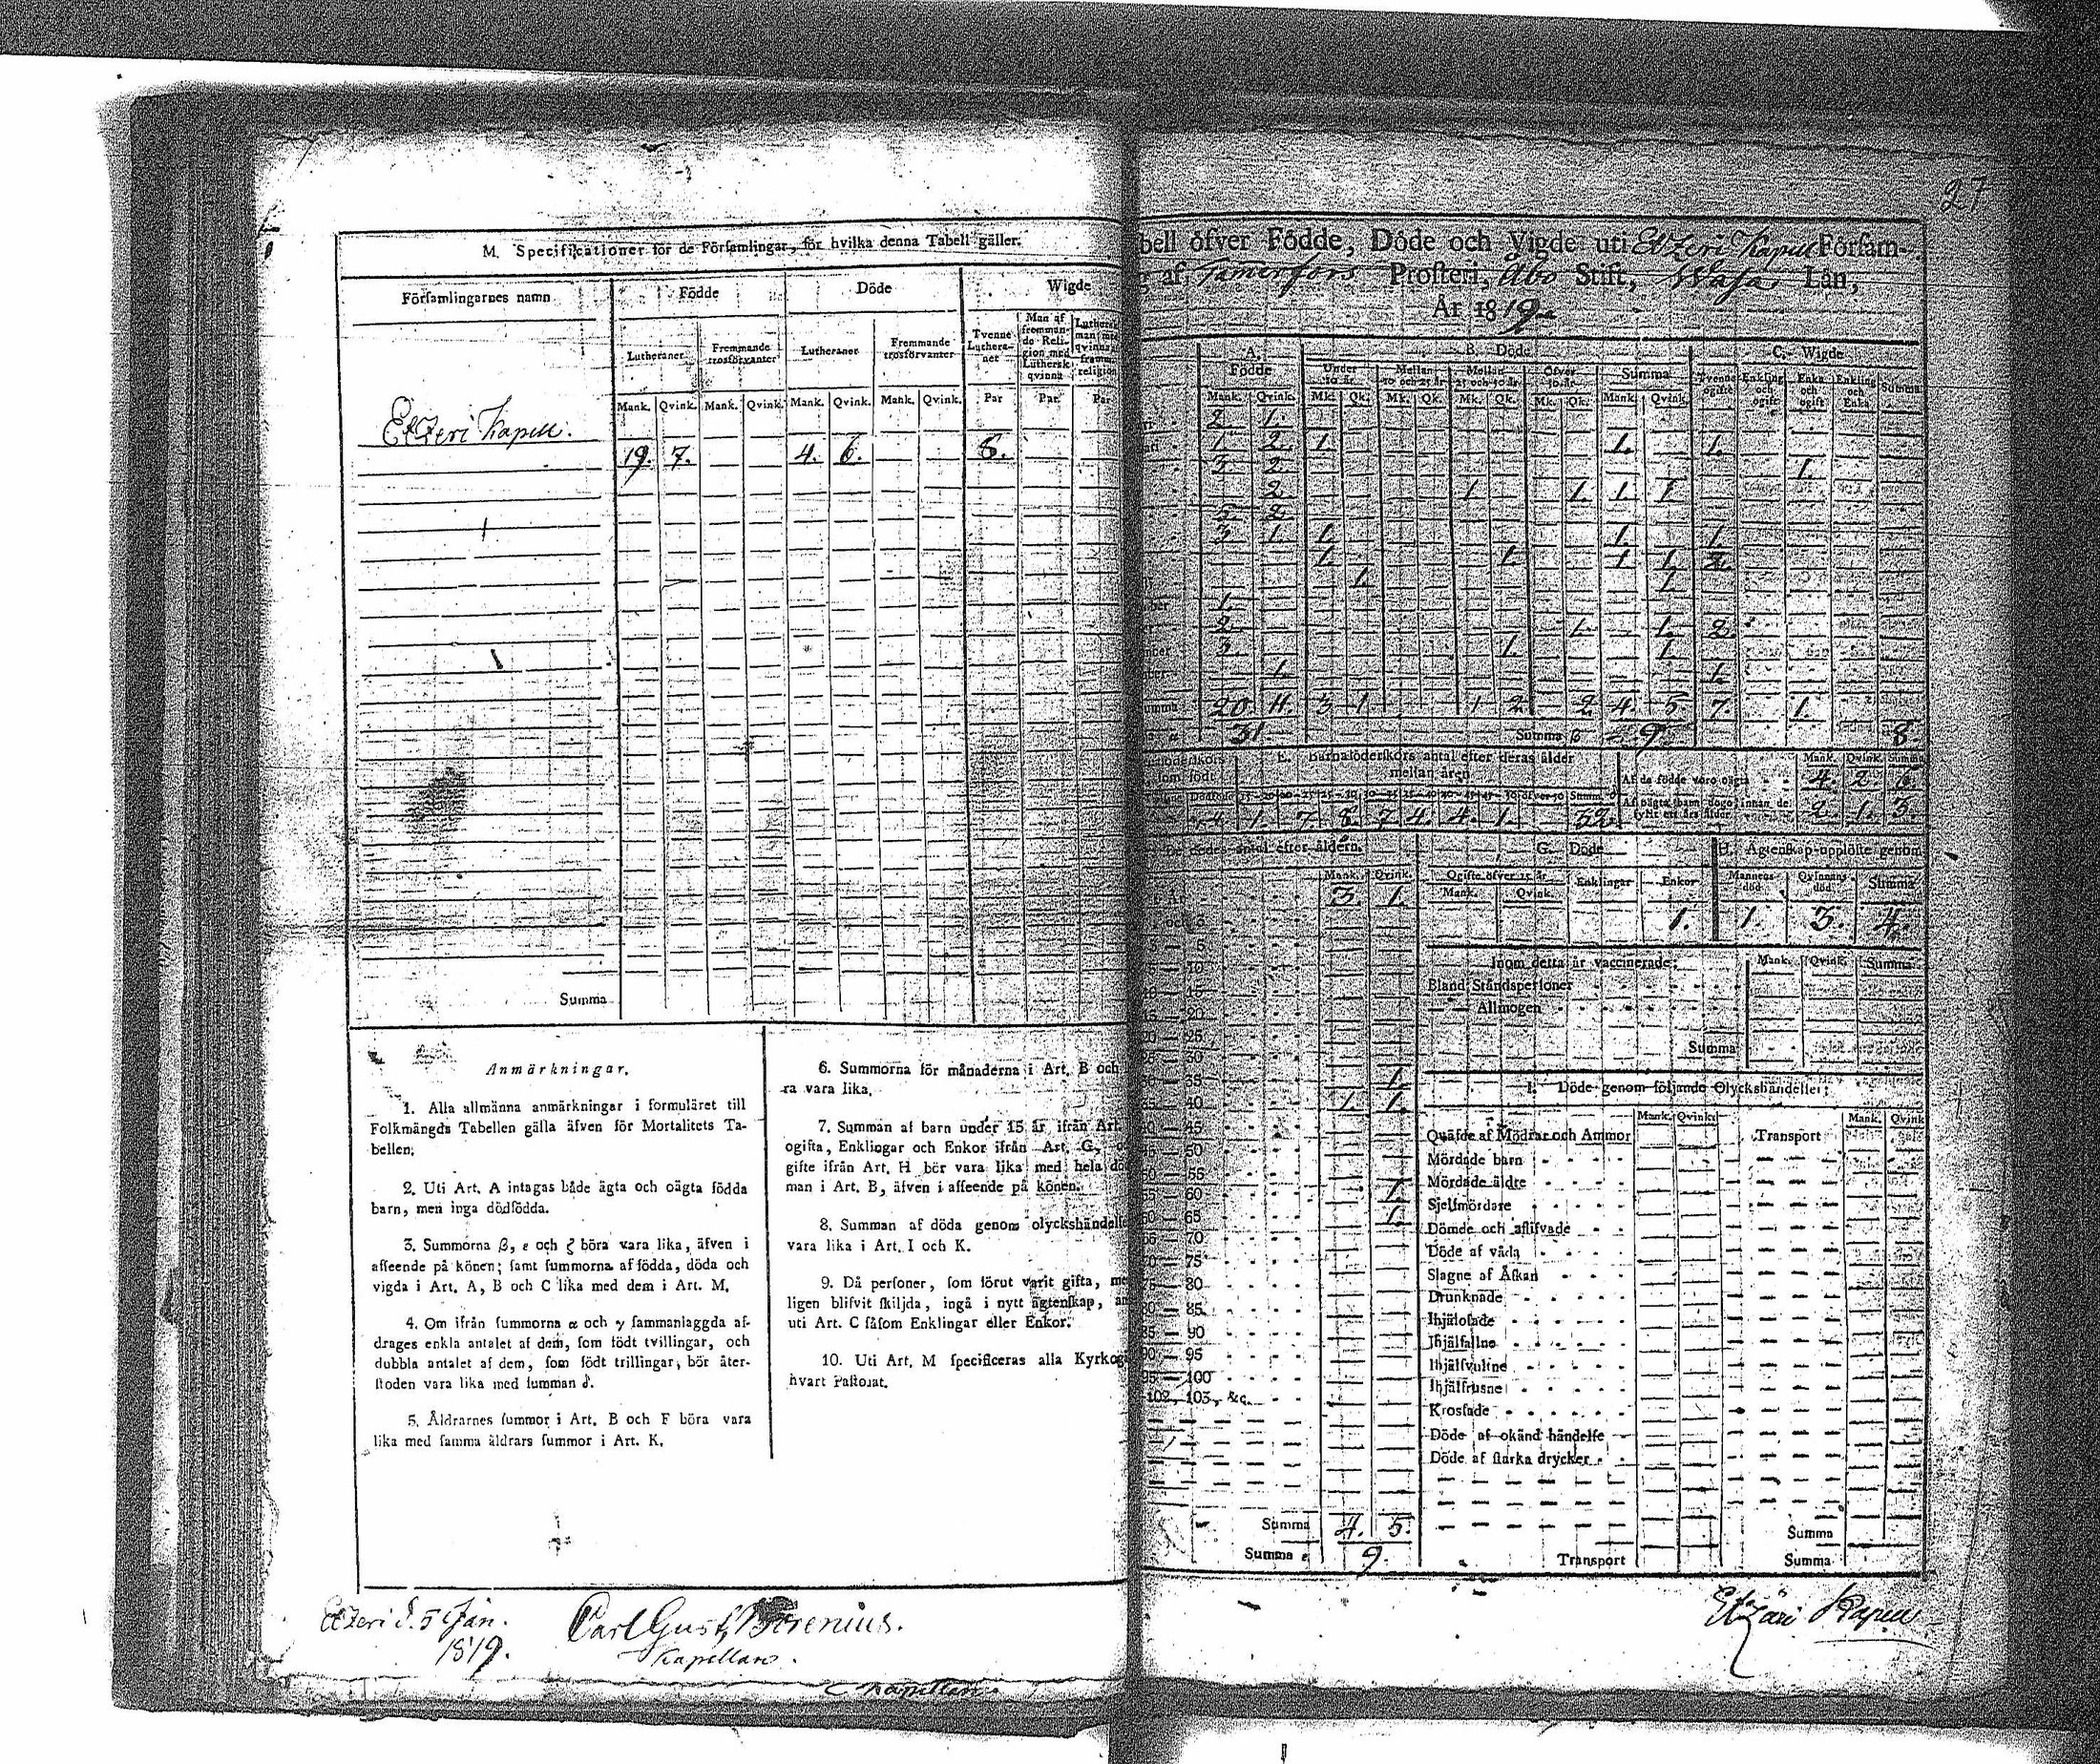 27
M. Specificationer för de Församlingar, för hvilka denna Tabell gäller.
Församlingarnes namn
Födde
Döde
Wigde
Lutheraner
Fremmande trosförvanter
Lutheraner
Fremmande trosförvanter
Tvenne Lutheranet
Man af fremmande Religion med Luthersk qvinna
Luthersk man med qvinna fremm. religion
Mank. Qvink. Mank. Qvink. Mank. Qvink. Mank. Qvink. Par Par Par
Etzeri Kapell.
19. 7. 4. 6. 8.
Summa
Anmärkningar.
1. Alla allmänna anmärkningar i formuläret till
Folkmängds Tabellen gälla äfven för Mortalitets Ta-
bellen.
2. Uti Art. A intagas både ägta och oägta födda
barn, men inga dödfödda.
3. Summorna β, ε och ζ böra vara lika, äfven i
afseende på könen; samt summorna af födda, döda och
vigda i Art. A, B och C lika med dem i Art. M.
4. Om ifrån summorna α och γ sammanlaggda af-
drages enkla antalet af dem, som födt tvillingar, och
dubbla antalet af dem, som födt trillingar, bör åter-
stoden vara lika med summan δ.
5. Åldrarnes summor i Art. B och F böra vara
lika med samma åldrars summor i Art. K.
6. Summorna för månaderna i Art. B och
ra vara lika.
7. Summan af barn under 15 år ifrån Art.
ogifta, Enklingar och Enkor ifrån Art. G,
gifte ifrån Art. H bör vara lika med hela dö
man i Art. B, äfven i afseende på könen.
8. Summan af döda genom olyckshändelse
vara lika i Art. I och K.
9. Då personer, som förut varit gifta, me
ligen blifvit skiljda, ingå i nytt ägtenskap, an
uti Art. C såsom Enklingar eller Enkor.
10. Uti Art. M specificeras alla Kyrkog
hvart Pastorat.
Etzeri d. 5 Jan.
1819.
Carl Gust. Borenius.
Kapellan.
bell öfver Födde, Döde och Vigde uti Etzeri Kapell Försam-
g af Tamerfors Prosteri, Åbo Stift, Wasa Län,
År 1819
A. Födde
B. Döde
C. Wigde
Under 10 år.
Mellan 10 och 25 år.
Mellan 25 och 50 år.
Öfver 50 år.
Summa
Tvenne ogifte
Enkling och ogift
Enka och ogift
Enkling och Enka
Summa
Mank. Qvink. Mk. Qk. Mk. Qk. Mk. Qk. Mk. Qk. Mank. Qvink.
2 1.
1 2 1. 1. 1.
3 2 1.
2 1 1. 1. 1.
5 2
3 1 1. 1. 1.
1. 1. 1. 1. 2.
1. 1.
1.
2. 1. 1. 2.
3. 1. 1.
1. 1.
Summa 20 11. 3 1 1 2 2 4. 5 7. 1.
31 Summa β 9. 8.
E. Barnaföderskors antal efter deras ålder
mellan åren
1. 7. 8. 7 4. 4. 1. 32.
Mank. Qvink. Summa
Af de födde voro oägta 4. 2. 6.
Af oägta barn dogo innan de
fyllt ett års ålder 2. 1. 3.
De dödes antal efter åldern.
Mank. Qvink.
3. 1.
5
10
15
20
25
30
35 1.
40 1. 1.
45
50
55
60 1.
65 1.
70
75
80
85
90
95
100
102, 103, &c.
Summa 4. 5.
Summa ε 9.
G. Döde
Ogifte öfver 15 år
Mank. Qvink.
Enklingar
Enkor
1.
H. Ägtenskap upplöste genom
Mannens död
Qvinnans död
Summa
1. 3. 4.
Inom detta år vaccinerade: Mank. Qvink. Summa
Bland Ståndspersoner
Allmogen
Summa
I. Döde genom följande Olyckshändelser:
Mank. Qvink. Mank. Qvink
Quäfde af Mödrar och Ammor Transport
Mördade barn
Mördade äldre
Sjelfmördare
Dömde och aflifvade
Döde af våda
Slagne af Åskan
Drunknade
Ihjälosade
Ihjälfallne
Ihjälsvultne
Ihjälfrusne
Krossade
Döde af okänd händelse
Döde af starka drycker
Summa
Transport Summa
Etzäri Kapell